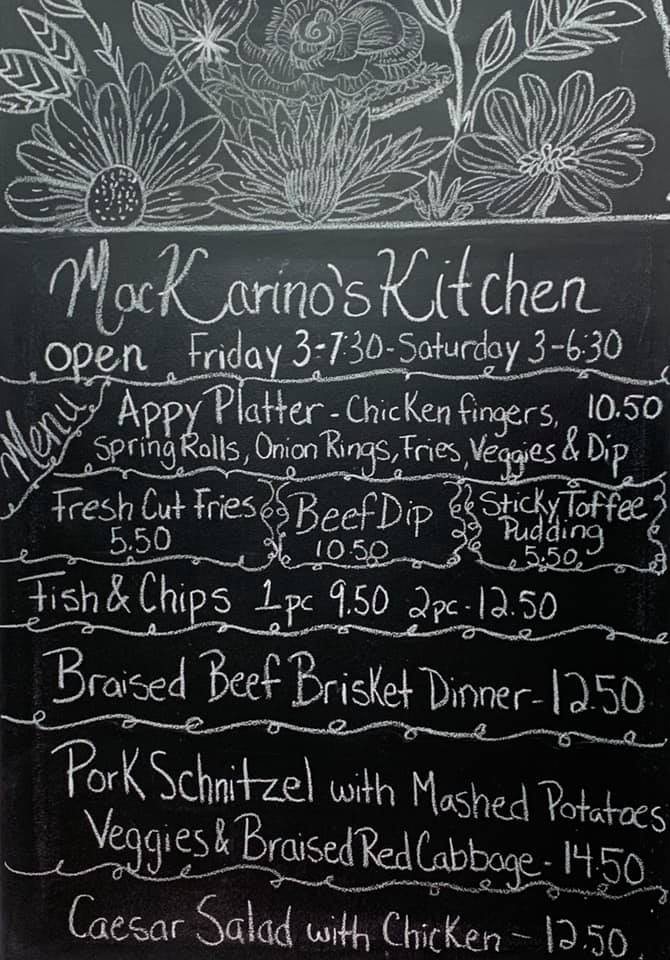 MacKarino's Kitchen
open Friday 3-7:30-Saturday 3-6:30
Menu
Appy Platter - Chicken fingers, 10.50
Spring Rolls, Onion Rings, Fries, Veggies & Dip
Fresh Cut Fries
5.50
Beef Dip
10.50
Sticky Toffee
Pudding
5.50
Fish & Chips 1pc 9.50 2pc-12.50
Braised Beef Brisket Dinner-12.50
Pork Schnitzel with Mashed Potatoes
Veggies & Braised Red Cabbage-14.50
Caesar Salad with Chicken - 12.50